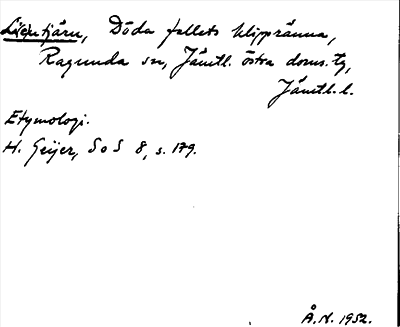 Döda fallets klippränna,
Ragunda sn, Jämtl. östra doms. tg,
Jämtl. l.
Etymologi.
H. Geijer, SoS 8, s. 179.
Å.N. 1952.